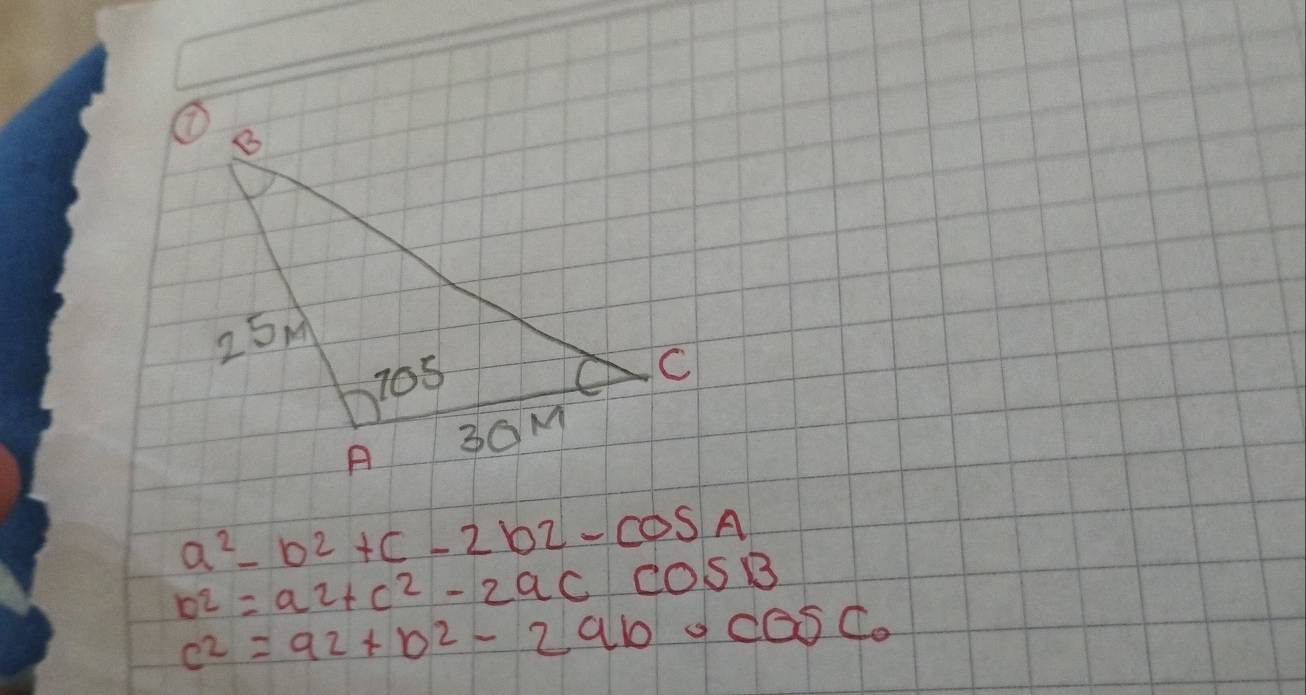 ①
B
25M
105
C
30M
A
a² - b² + c - 2b2 - cos A
b² = a2 + c² - 2ac cosB
c² = a2 + b² - 2ab • cos C.